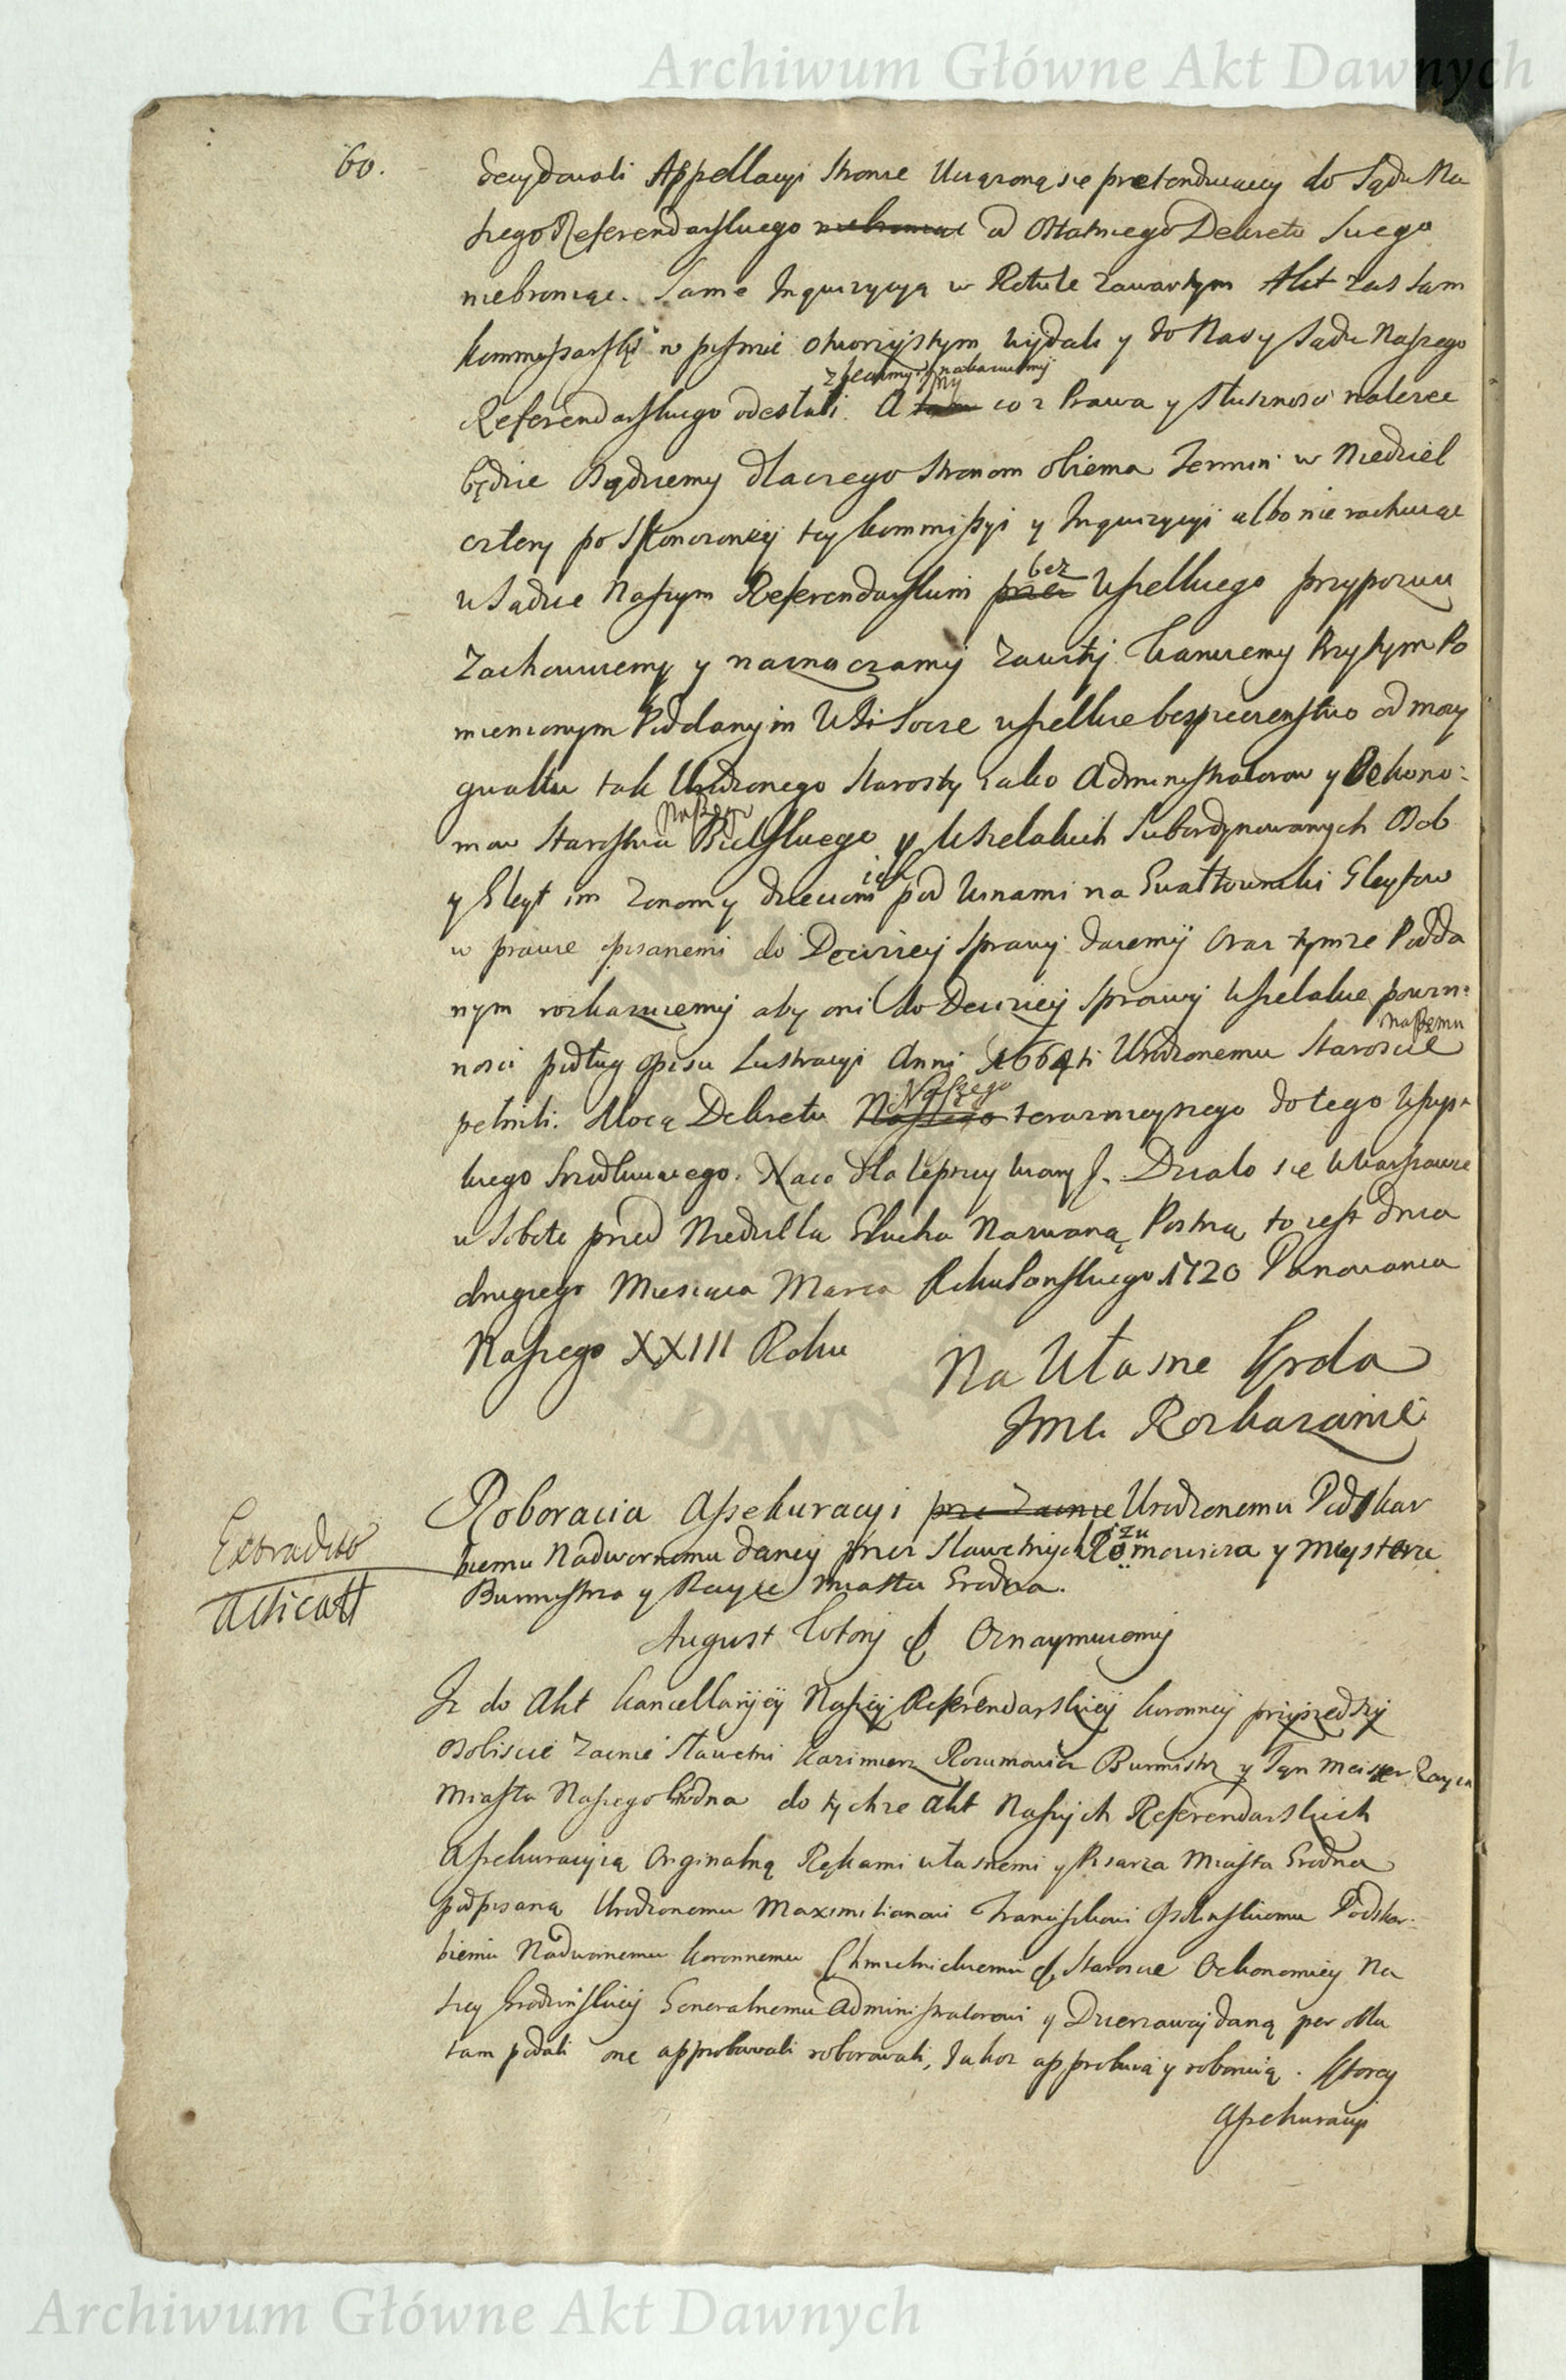 Archiwum Główne Akt Dawnych
60.
decydowali Appellacyi stronie Uciążoną się pretenduiącey do Sądu Na
szego Referendarskiego od Ostatniego Dekretu Swego
niebroniąc. Same Inquizycyą w Rotule zawartym Akt zas sam
Kommissarski w pismie otworzystym wydali y do Nas y Sądu Naszego
zlecamy y nakazuiemy
Referendarskiego odesłali. A my co z Prawa y słusznosci nalezec
będzie Osądziemy dlaczego stronom obiema Termin w Niedziel
cztery po Skonczoney tey kommissyi y Inquizycyi albo nie rachuiąc
bez
w Sądzie Naszym Referendarskim przez wszelkiego przypozwu
Zachowuiemy y naznaczamy zawity. Waruiemy Przytym Po
mienionym Poddanym Wsi Socze wszelkie bespieczenstwo od mocy
gwałtu tak Urodzonego Starosty iako Administratorow y Oekono:
Naszego
mow Starostwa Bielskiego y Wszelakich Subordynowanych Osob
ich
y Gleyt im Zonom y dzieciom pod winami na Gwałtowniki Gleytow
w prawie opisanemi do Deciziey Sprawy daiemy Oraz tymze Podda
nym rozkazuiemy aby oni do Deciziey Sprawy wszelakie powin=
naszemu
nosci podług opisu Lustracyi Anni 1664ti Urodzonemu Staroscie
Naszego
pełnili. Mocą Dekretu Naszego teraznieyszego do tego wszyt=
kiego sciągaiącego. Na co dla lepszey wiary f. Działo się w Warszawie
w Sobotę przed Niedzielą Głucha Nazwaną Postną to iest dnia
drugiego Miesiąca Marca Roku Panskiego 1720 Panowania
Naszego XXIII Roku
Na Własne Krola
Jmci Rozkazanie
Extradit
Acticatt
Roboracia Assekuracyi przezacnie Urodzonemu Podskar
biemu Nadwornemu daney przez Sławetnych Rozumowicza y Meystera
Burmistrza y Raycę Miasta Grodna.
August Wtory &c Oznaymuiemy
Iz do Akt Kancellaryey Naszey Referendarskiey koronney przyszedszy
Osobiscie Zacnie Sławetni Kazimierz Rozumowicz Burmistrz y Meister Rayca
Miasta Naszego Grodna do tychze Akt Naszych Referendarskich
Assekuracyią Orginalną Rękami własnemi y Pisarza Miasta Grodna
podpisaną Urodzonemu Maximilianowi Franciszkowi Ossolinskiemu Podskar:
biemu Nadwornemu koronnemu Chmielnickiemu &c Staroscie Oekonomiey Na
szey Grodzinskiey Generalnemu Administratorowi y Dzierzawcy daną per obla
tam podali onę approbowali roborowali, Iakoz approbuią y roboruią. Ktorey
Assekuracyi
Archiwum Główne Akt Dawnych